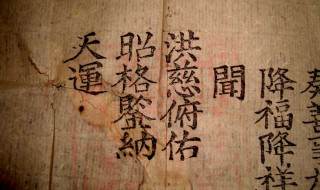 奏善
降福降祥
聞
洪慈俯佑
昭格鑒納
天運